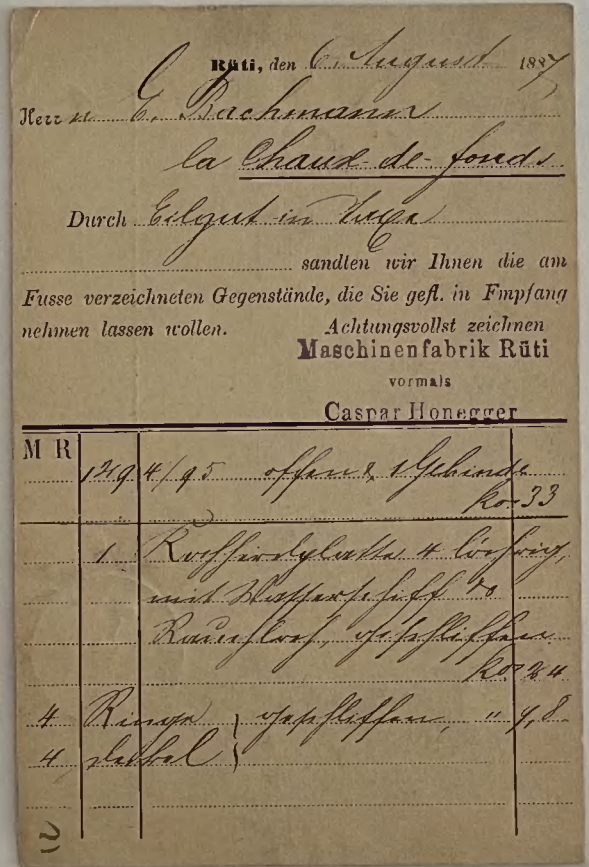 Rüti, den 6. August 1887
Herrn E. Bachmann
la Chaux-de-fonds
Durch Eilgut in
sandten wir Ihnen die am
Fusse verzeichneten Gegenstände, die Sie gefl. in Empfang
nehmen lassen wollen. Achtungsvollst zeichnen
Maschinenfabrik Rüti
vormals
Caspar Honegger
M R 1294/95 offen & 1 Gebinde
ko 33
1 Kochherdplatte 4 löchrig,
mit Wasserschiff &
Rauchloch, geschliffen
ko 24
4 Ringe } geschliffen, " 9,8
4 Deckel }